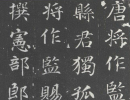 唐將作監
縣君獨孤
將作監賜
撰憲部郎